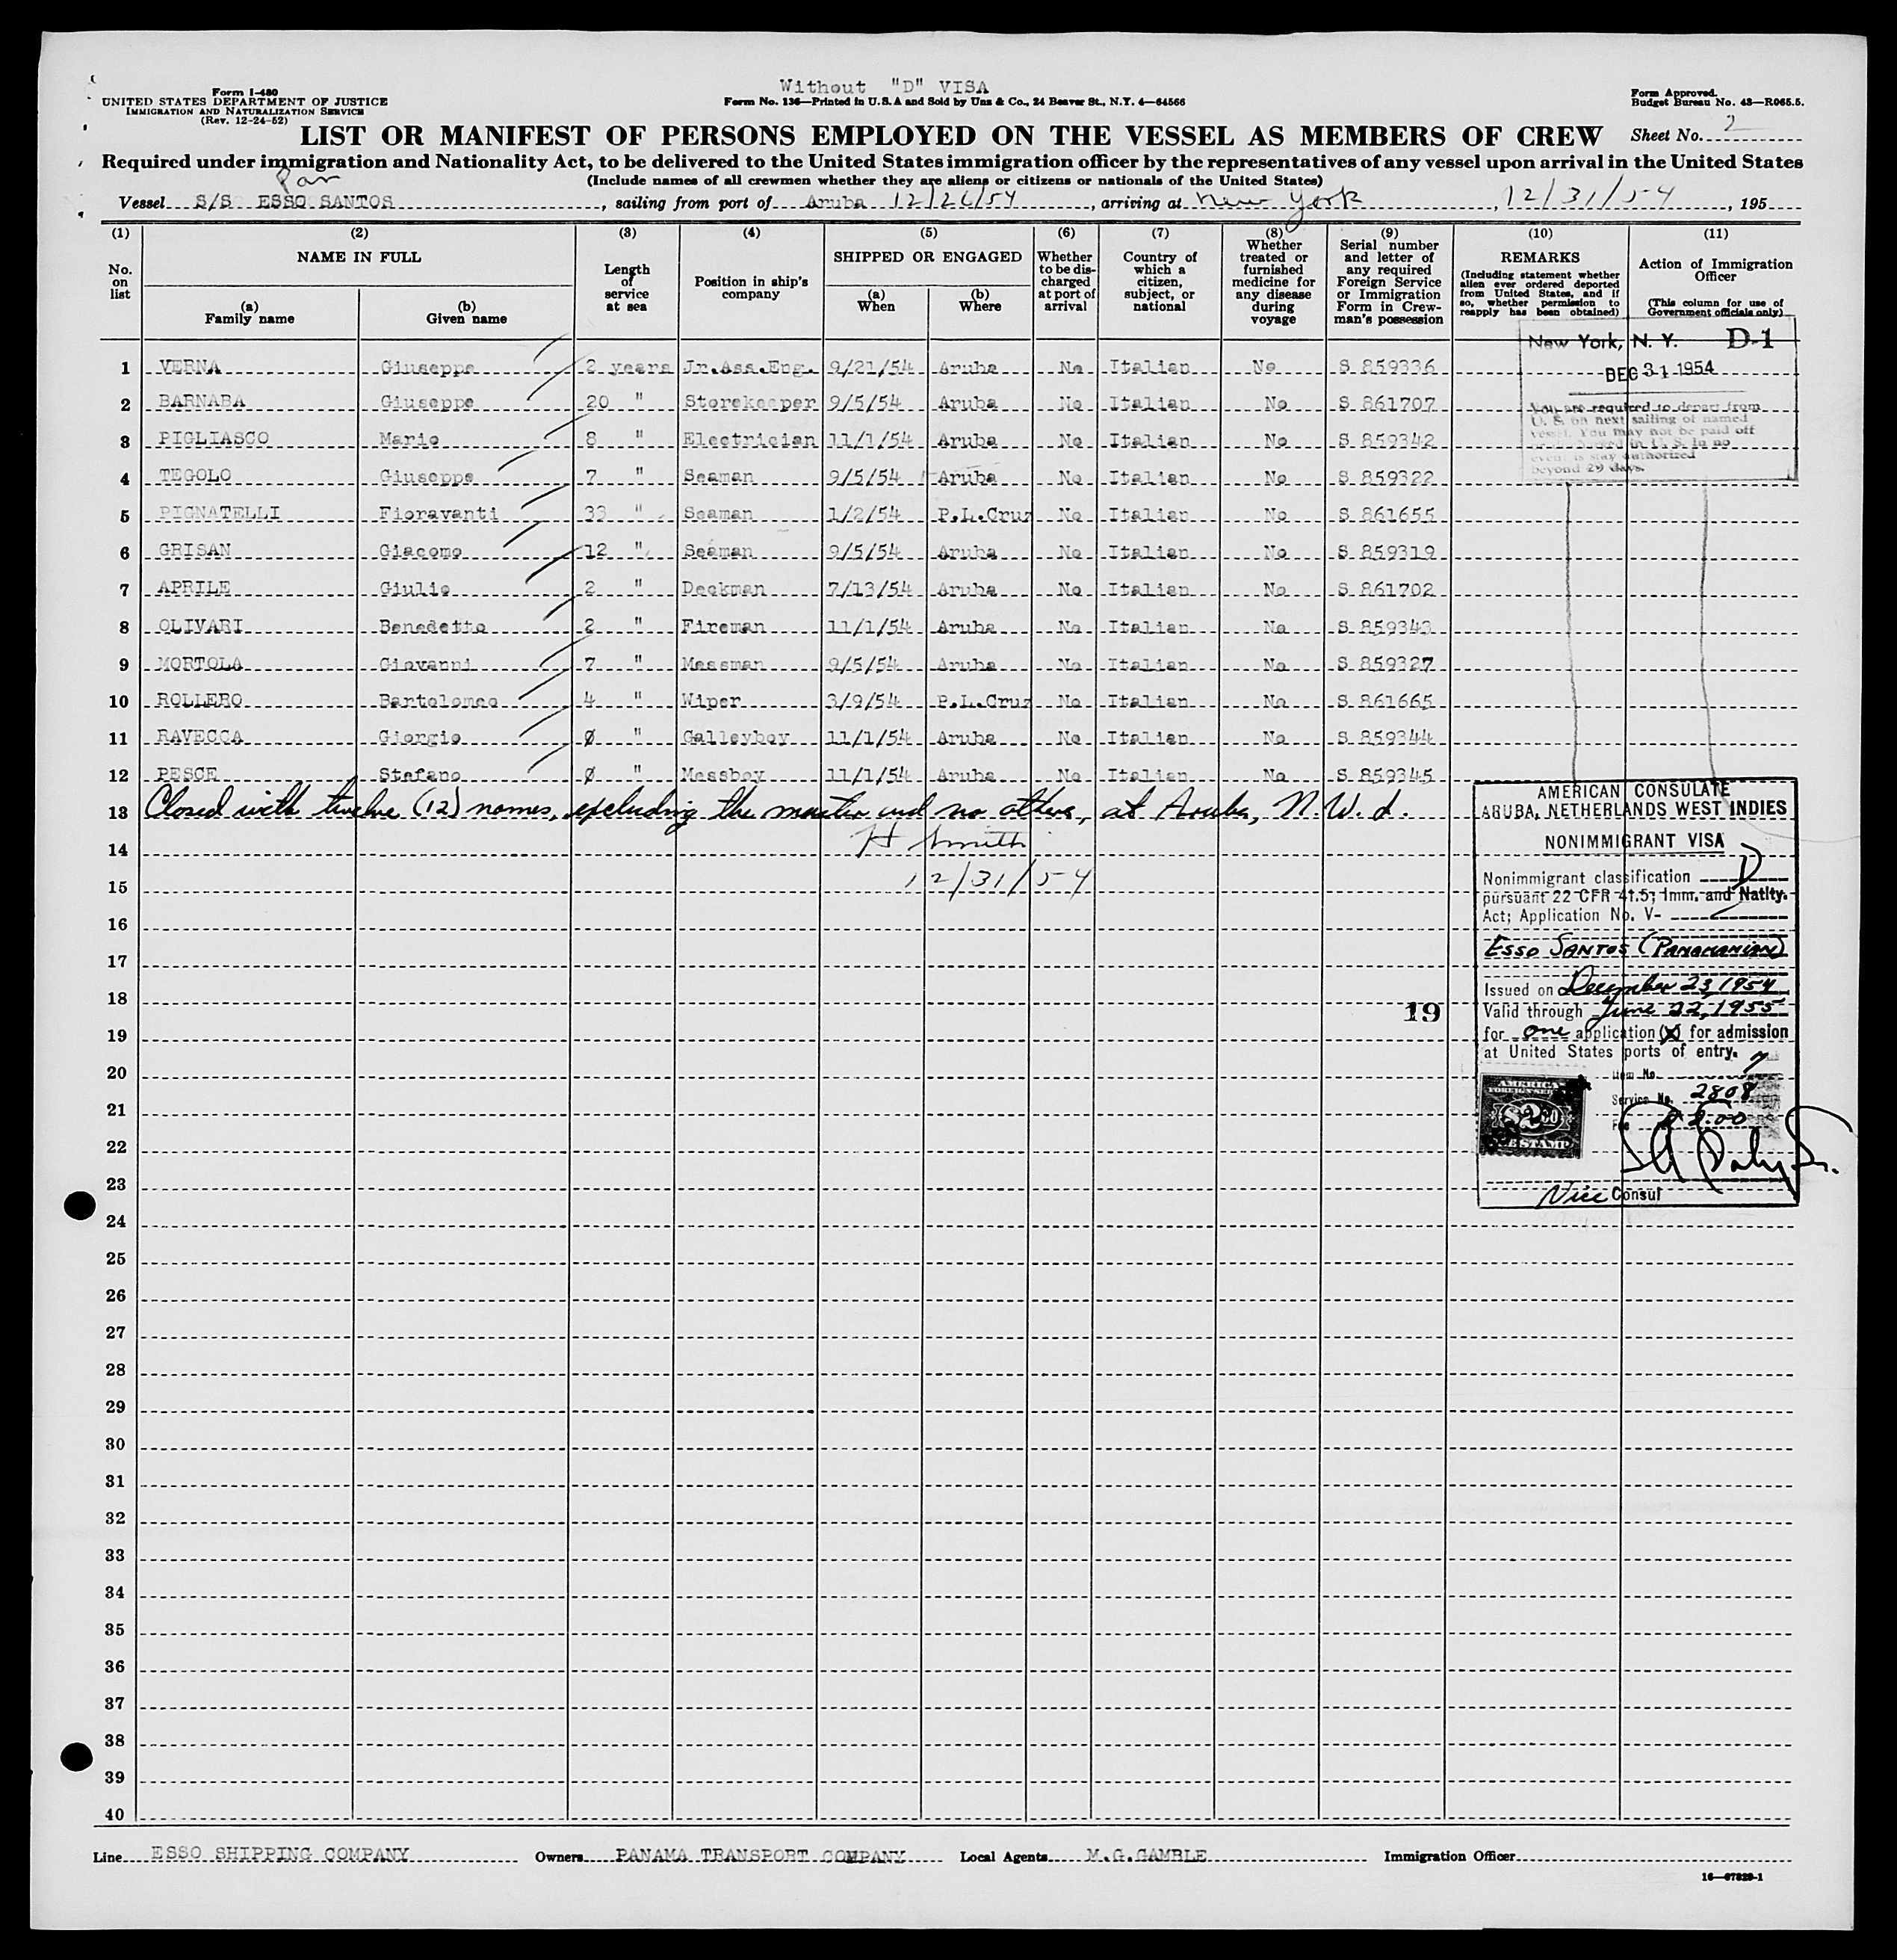 Without "D" VISA
Form I-480
UNITED STATES DEPARTMENT OF JUSTICE
IMMIGRATION AND NATURALIZATION SERVICE
(Rev. 12-24-52)
Form No. 136—Printed in U.S.A and Sold by Unz & Co., 24 Beaver St., N.Y. 4—64566
Form Approved.
Budget Bureau No. 43—R065.5.
LIST OR MANIFEST OF PERSONS EMPLOYED ON THE VESSEL AS MEMBERS OF CREW
Sheet No. 2
Required under immigration and Nationality Act, to be delivered to the United States immigration officer by the representatives of any vessel upon arrival in the United States
(Include names of all crewmen whether they are aliens or citizens or nationals of the United States)
Pan
Vessel S/S ESSO SANTOS, sailing from port of Aruba 12/26/54, arriving at New York, 12/31/54, 195
(1) (2) (3) (4) (5) (6) (7) (8) (9) (10) (11)
No. on list
NAME IN FULL
(a) Family name
(b) Given name
Length of service at sea
Position in ship's company
SHIPPED OR ENGAGED
(a) When
(b) Where
Whether to be discharged at port of arrival
Country of which a citizen, subject, or national
Whether treated or furnished medicine for any disease during voyage
Serial number and letter of any required Foreign Service or Immigration Form in Crewman's possession
REMARKS
(Including statement whether alien ever ordered deported from United States, and if so, whether permission to reapply has been obtained)
Action of Immigration Officer
(This column for use of Government officials only)
1 VERNA Giuseppe 2 years Jr.Ass.Eng. 9/21/54 Aruba No Italian No S 859336
2 BARNABA Giuseppe 20 " Storekeeper 9/5/54 Aruba No Italian No S 861707
3 PIGLIASCO Mario 8 " Electrician 11/1/54 Aruba No Italian No S 859342
4 TEGOLO Giuseppe 7 " Seaman 9/5/54 Aruba No Italian No S 859322
5 PIGNATELLI Fioravanti 33 " Seaman 1/2/54 P.L.Cruz No Italian No S 861655
6 GRISAN Giacomo 12 " Seaman 9/5/54 Aruba No Italian No S 859319
7 APRILE Giulio 2 " Deckman 7/13/54 Aruba No Italian No S 861702
8 OLIVARI Benedetto 2 " Fireman 11/1/54 Aruba No Italian No S 859343
9 MORTOLA Giovanni 7 " Messman 9/5/54 Aruba No Italian No S 859327
10 ROLLERO Bartolomeo 4 " Wiper 3/9/54 P.L.Cruz No Italian No S 861665
11 RAVECCA Giorgio 0 " Galleyboy 11/1/54 Aruba No Italian No S 859344
12 PESCE Stefano 0 " Messboy 11/1/54 Aruba No Italian No S 859345
New York, N. Y. D-1
DEC 31 1954
You are required to depart from
U. S. on next sailing of named
vessel. You may not be paid off
in U. S. In no
event is stay authorized
beyond 29 days.
13 Closed with twelve (12) names, excluding the master and no others, at Aruba, N.W.I.
14 H Smith
15 12/31/54
16
17
18
19
20
21
22
23
24
25
26
27
28
29
30
31
32
33
34
35
36
37
38
39
40
19
AMERICAN CONSULATE
ARUBA, NETHERLANDS WEST INDIES
NONIMMIGRANT VISA
Nonimmigrant classification D
pursuant 22 CFR 41.5; Imm. and Natlty.
Act; Application No. V-
ESSO SANTOS (PANAMANIAN)
Issued on December 23, 1954
Valid through June 22, 1955
for one application (x) for admission
at United States ports of entry.
Item No. 7
Service No. 2808
Fee 2.00
AMERICAN
$2.00
FEE STAMP
Vice Consul
Line ESSO SHIPPING COMPANY Owners PANAMA TRANSPORT COMPANY Local Agents M.G.GAMBLE Immigration Officer
16—67829-1